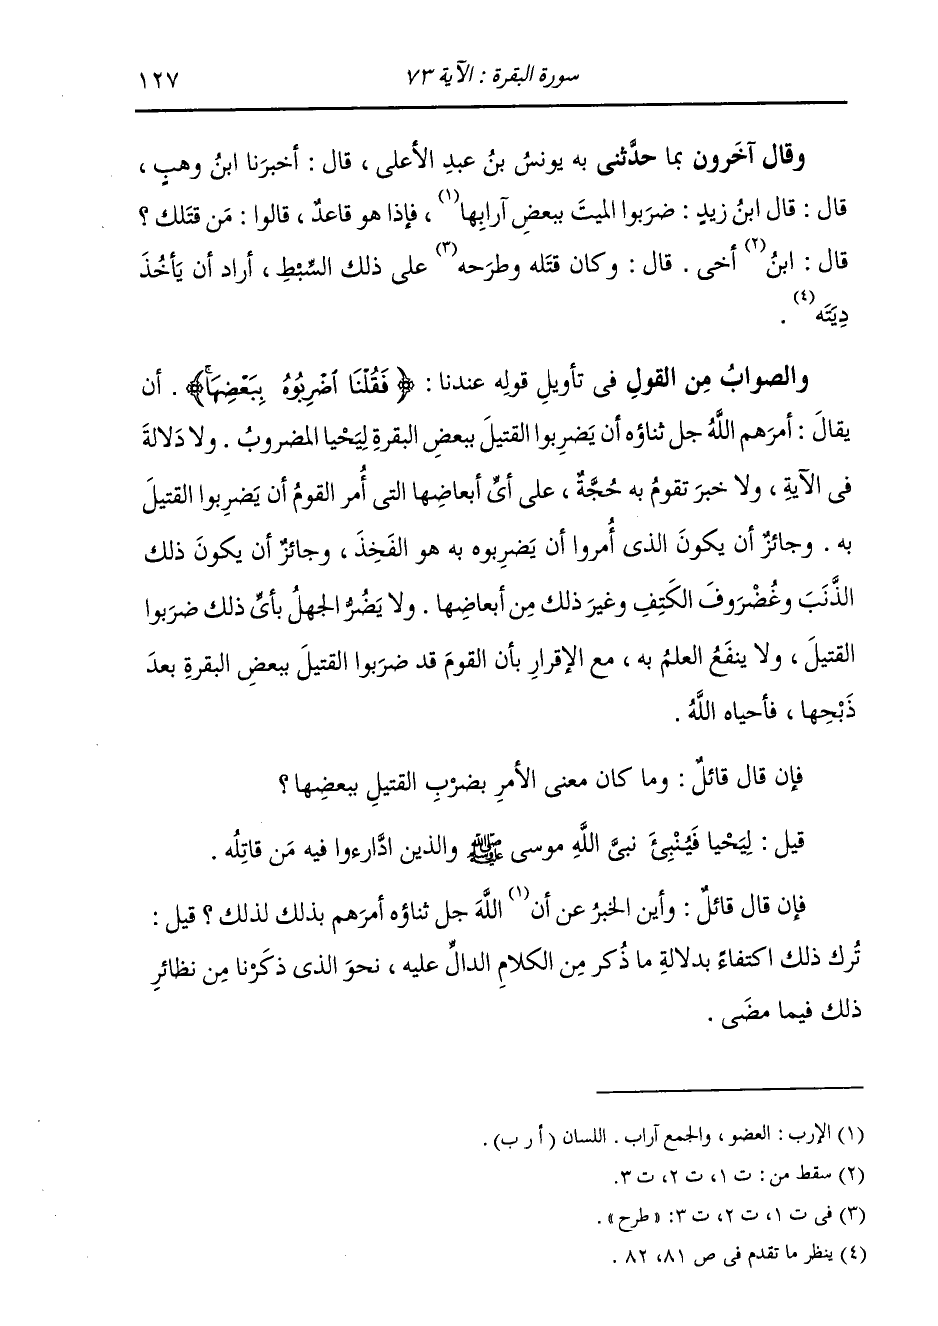 سورة البقرة : الآية ٧٣ ١٢٧
وقال آخَرون بما حدَّثنى به يونسُ بنُ عبدِ الأعلى ، قال : أخبرَنا ابنُ وهبٍ ،
قال : قال ابنُ زيدٍ : ضرَبوا الميتَ ببعضِ آرابِها(١) ، فإذا هو قاعدٌ ، قالوا : مَن قتَلك ؟
قال : ابنُ(٢) أخى . قال : وكان قتَله وطرَحه(٣) على ذلك السِّبْطِ ، أراد أن يَأخُذَ
دِيَتَه(٤) .
والصوابُ مِن القولِ فى تأويلِ قولِه عندنا : ﴿ فَقُلْنَا ٱضْرِبُوهُ بِبَعْضِهَاۚ ﴾ . أن
يقالَ : أمرَهم اللَّهُ جل ثناؤه أن يَضرِبوا القتيلَ ببعضِ البقرةِ لِيَحْيا المضروبُ . ولا دَلالةَ
فى الآيةِ ، ولا خبرَ تقومُ به حُجَّةٌ ، على أىِّ أبعاضِها التى أُمر القومُ أن يَضرِبوا القتيلَ
به . وجائزٌ أن يكونَ الذى أُمروا أن يَضرِبوه به هو الفَخِذَ ، وجائزٌ أن يكونَ ذلك
الذَّنَبَ وغُضْروفَ الكَتِفِ وغيرَ ذلك مِن أبعاضِها . ولا يَضُرُّ الجهلُ بأىِّ ذلك ضرَبوا
القتيلَ ، ولا ينفَعُ العلمُ به ، مع الإقرارِ بأن القومَ قد ضرَبوا القتيلَ ببعضِ البقرةِ بعدَ
ذَبْحِها ، فأحياه اللَّهُ .
فإن قال قائلٌ : وما كان معنى الأمرِ بضرْبِ القتيلِ ببعضِها ؟
قيل : لِيَحْيا فَيُنْبِئَ نبىَّ اللَّهِ موسى ﷺ والذين ادَّارءوا فيه مَن قاتِلُه .
فإن قال قائلٌ : وأين الخبرُ عن أن(١) اللَّهَ جل ثناؤه أمرَهم بذلك لذلك ؟ قيل :
تُرك ذلك اكتفاءً بدلالةِ ما ذُكر مِن الكلامِ الدالِّ عليه ، نحوَ الذى ذكَرْنا مِن نظائرِ
ذلك فيما مضَى .
(١) الإرب : العضو ، والجمع آراب . اللسان ( أ ر ب ) .
(٢) سقط من : ت ١، ت ٢، ت ٣.
(٣) فى ت ١، ت ٢، ت ٣: « طرح » .
(٤) ينظر ما تقدم فى ص ٨١، ٨٢ .